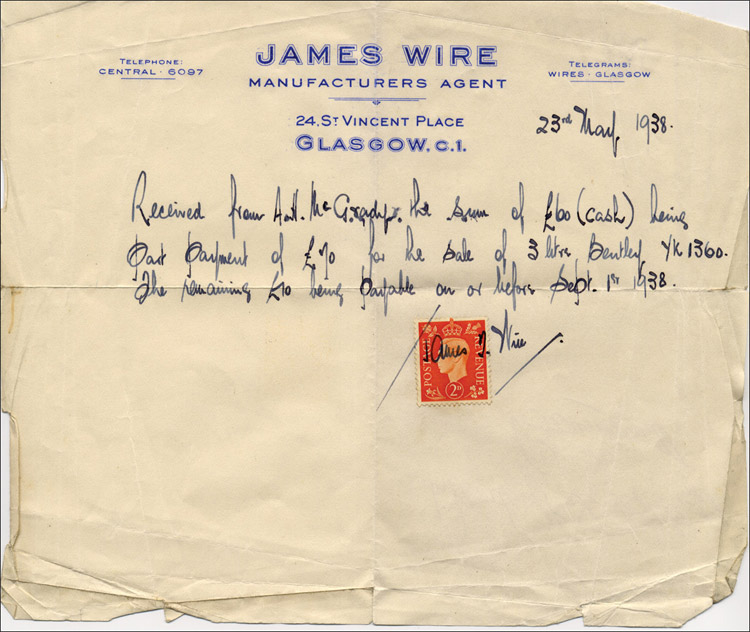 TELEPHONE:
CENTRAL · 6097
JAMES WIRE
MANUFACTURERS AGENT
TELEGRAMS:
WIRES · GLASGOW
24, ST VINCENT PLACE
GLASGOW, C.1.
23rd May, 1938.
Received from McGrady the sum of £60 (cash) being
Part Payment of £70 for the sale of 3 litre Bentley YK 1360.
The remaining £10 being Payable on or before Sept. 1st 1938.
James J. Wire
POSTAGE
REVENUE
2D